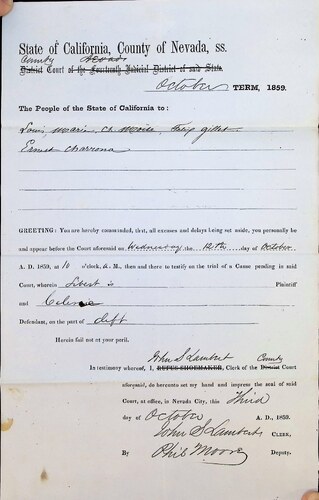 State of California, County of Nevada, ss.
County Nevada
District Court of the Fourteenth Judicial District of said State.
October TERM, 1859.
The People of the State of California to:
Louis Marie Ct Moise, Felix gillet
Ernest Charrona
GREETING: You are hereby commanded, that, all excuses and delays being set aside, you personally be
and appear before the Court aforesaid on Wednesday the 12th day of October
A. D. 1859, at 10 o'clock, A. M., then and there to testify on the trial of a Cause pending in said
Court, wherein is Plaintiff
and
Defendant, on the part of deft
Herein fail not at your peril.
John S Lambert County
In testimony whereof, I, RUFUS SHOEMAKER, Clerk of the District Court
aforesaid, do hereunto set my hand and impress the seal of said
Court, at office, in Nevada City, this Third
day of October A. D., 1859.
John S Lambert CLERK,
By Phil Moore Deputy.